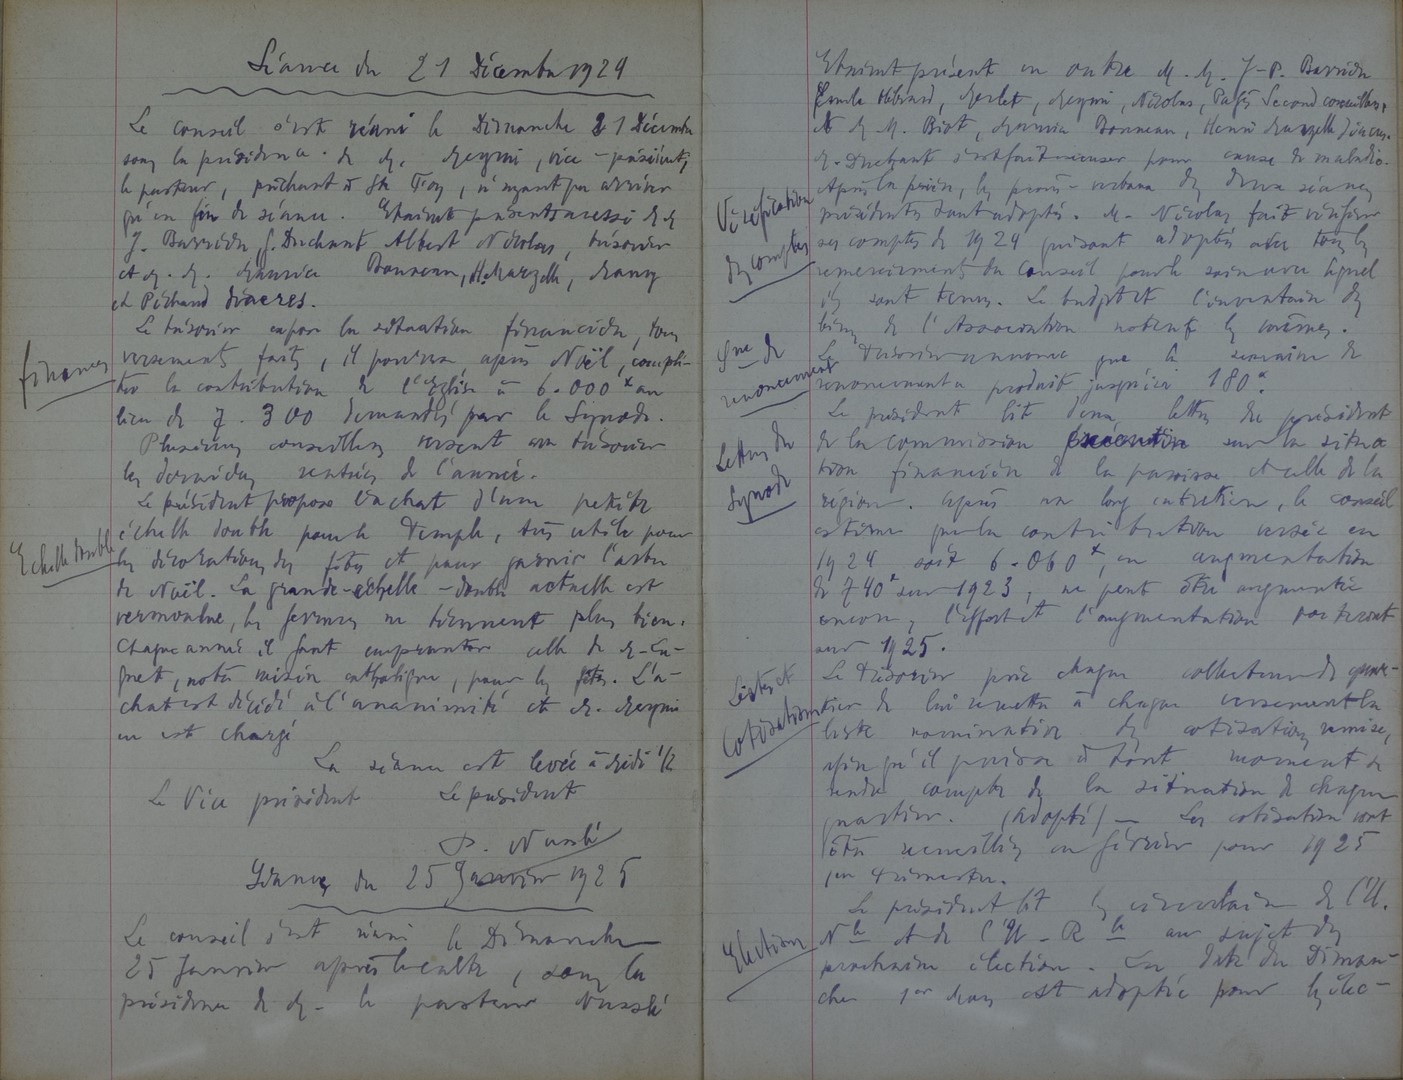 Séance du 21 Décembre 1924
Le conseil s'est réuni le Dimanche 21 Décembre
sous la présidence de M. Meyniu, vice-président,
le pasteur, prêchant à Ste Foy, n'ayant pu arriver
qu'en fin de séance. Etaient présents aussi M M
J. Barrière, J. Duchant Albert Nicolas, trésorier
et M. M. Maurice Bonneau, H. Marzelle,
et Pichaud diacres.
Le trésorier expose la situation financière, tous
finances
versements faits, il pourra après Noël, complé-
ter la contribution de l'Eglise à 6.000 f au
lieu de 7.300 demandés par le Synode.
Plusieurs conseillers versent au trésorier
les dernières rentrées de l'année.
Le président propose l'achat d'une petite
Echelle double
échelle double pour le Temple, très utile pour
les décorations des fêtes et pour garnir l'arbre
de Noël. La grande échelle-double actuelle est
vermoulue, les ferrures ne tiennent plus bien.
Chaque année il faut emprunter celle de M. La-
, notre voisin catholique, pour les fêtes. L'a-
chat est décidé à l'unanimité et M. Meyniu
en est chargé
La séance est levée à midi 1/2
Le Vice président Le président
D. Nusslé
Séance du 25 Janvier 1925
Le conseil s'est réuni le Dimanche
25 Janvier après le culte, sous la
présidence de M. le pasteur Nusslé
Etaient présent en outre M. M. J-P. Barrière
Emile Hébrard, Merlet, Meyniu, Nicolas, Pagès Second conseillers,
et M. M. Biot, Maurice Bonneau, Henri Marzelle diacres.
M. Duchant s'est fait excuser pour cause de maladie.
Après la prière, les procès-verbaux des deux séances
précédentes sont adoptés. M. Nicolas fait vérifier
Vérification
des comptes
ses comptes de 1924 qui sont adoptés avec tous les
remerciements du Conseil pour le soin avec lequel
ils sont tenus. Le budget et l'inventaire des
biens de l'Association notent les mêmes.
Sne de
renoncement
Le Trésorier annonce que la semaine de
renoncement a produit jusqu'ici 180 f.
Le président lit deux lettres du président
Lettres du
Synode
de la commission exécutive sur la situa
tion financière de la paroisse et celle de la
région. Après un long entretien, le conseil
estime que la contribution versée en
1924 soit 6.060 f, en augmentation
de 740 f sur 1923, ne peut être augmentée
encore, l'effort et l'augmentation porteront
sur 1925.
Listes et
cotisations
Le Trésorier prie chaque collecteur de quar-
tier de lui remettre à chaque versement la
liste nominative des cotisations remises,
afin qu'il puisse à tout moment se
rendre compte de la situation de chaque
quartier. (Adopté) - Les cotisations vont
être recueillies en février pour 1925
1er trimestre.
Le président lit les circulaires de l'U.
Election
Nle et de l'U-Rle au sujet des
prochaine élection. La date du Diman-
che 1er Mars est adoptée pour les élec-